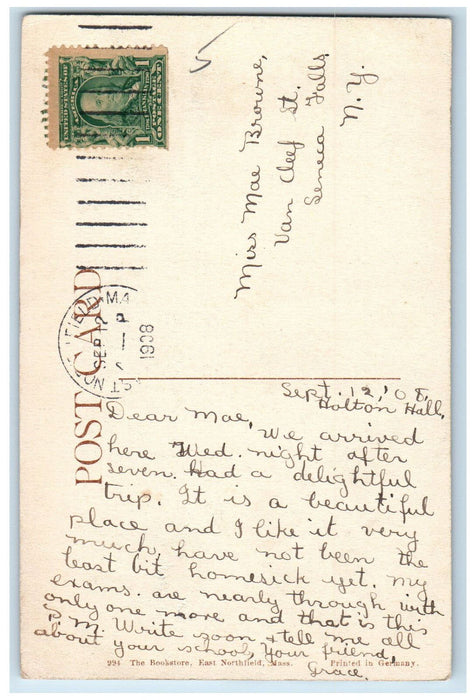 UNITED STATES OF AMERICA
1 1
ONE CENT
Miss Mae Browne,
Van Cleef St.
Seneca Falls
N. Y.
POST CARD
SEP 12
1908
Sept. 12, '08,
Holton Hall,
Dear Mae,
We arrived
here Wed. night after
seven. Had a delightful
trip. It is a beautiful
place and I like it very
much, have not been the
least bit homesick yet. My
exams. are nearly through with
only one more and that is this
P.M. Write soon & tell me all
about your school, Your friend,
Grace.
994 The Bookstore, East Northfield, Mass. Printed in Germany.